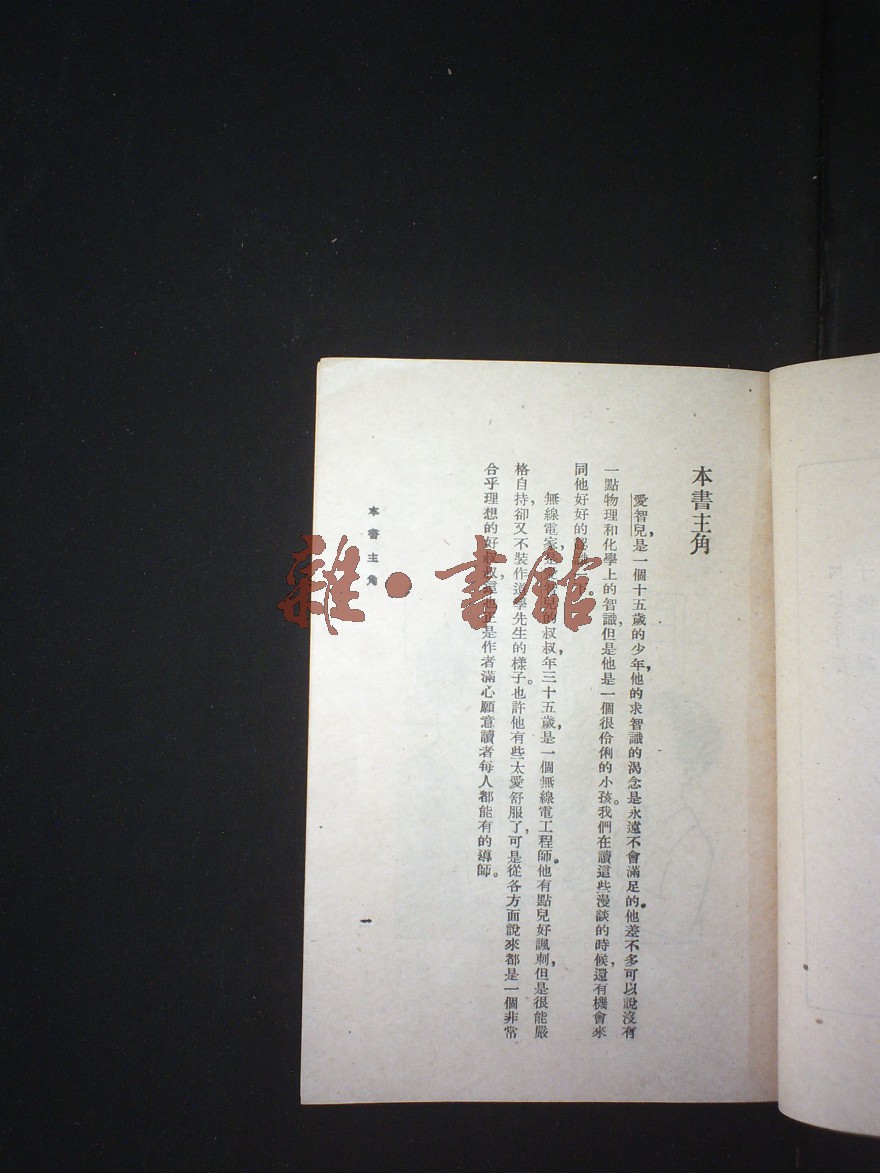 本書主角
愛智兒，是一個十五歲的少年，他的求智識的渴念是永遠不會滿足的。他差不多可以說沒有
一點物理和化學上的智識，但是他是一個很伶俐的小孩。我們在讀這些漫談的時候，還有機會來
同他好好的
無線電家，是愛智兒的叔叔，年三十五歲，是一個無線電工程師。他有點兒好諷刺，但是很能嚴
格自持，卻又不裝作道學先生的樣子。也許他有些太愛舒服了，可是從各方面說來都是一個非常
合乎理想的好叔叔，這也正是作者滿心願意讀者每人都能有的導師。
本書主角
一
雜·書館